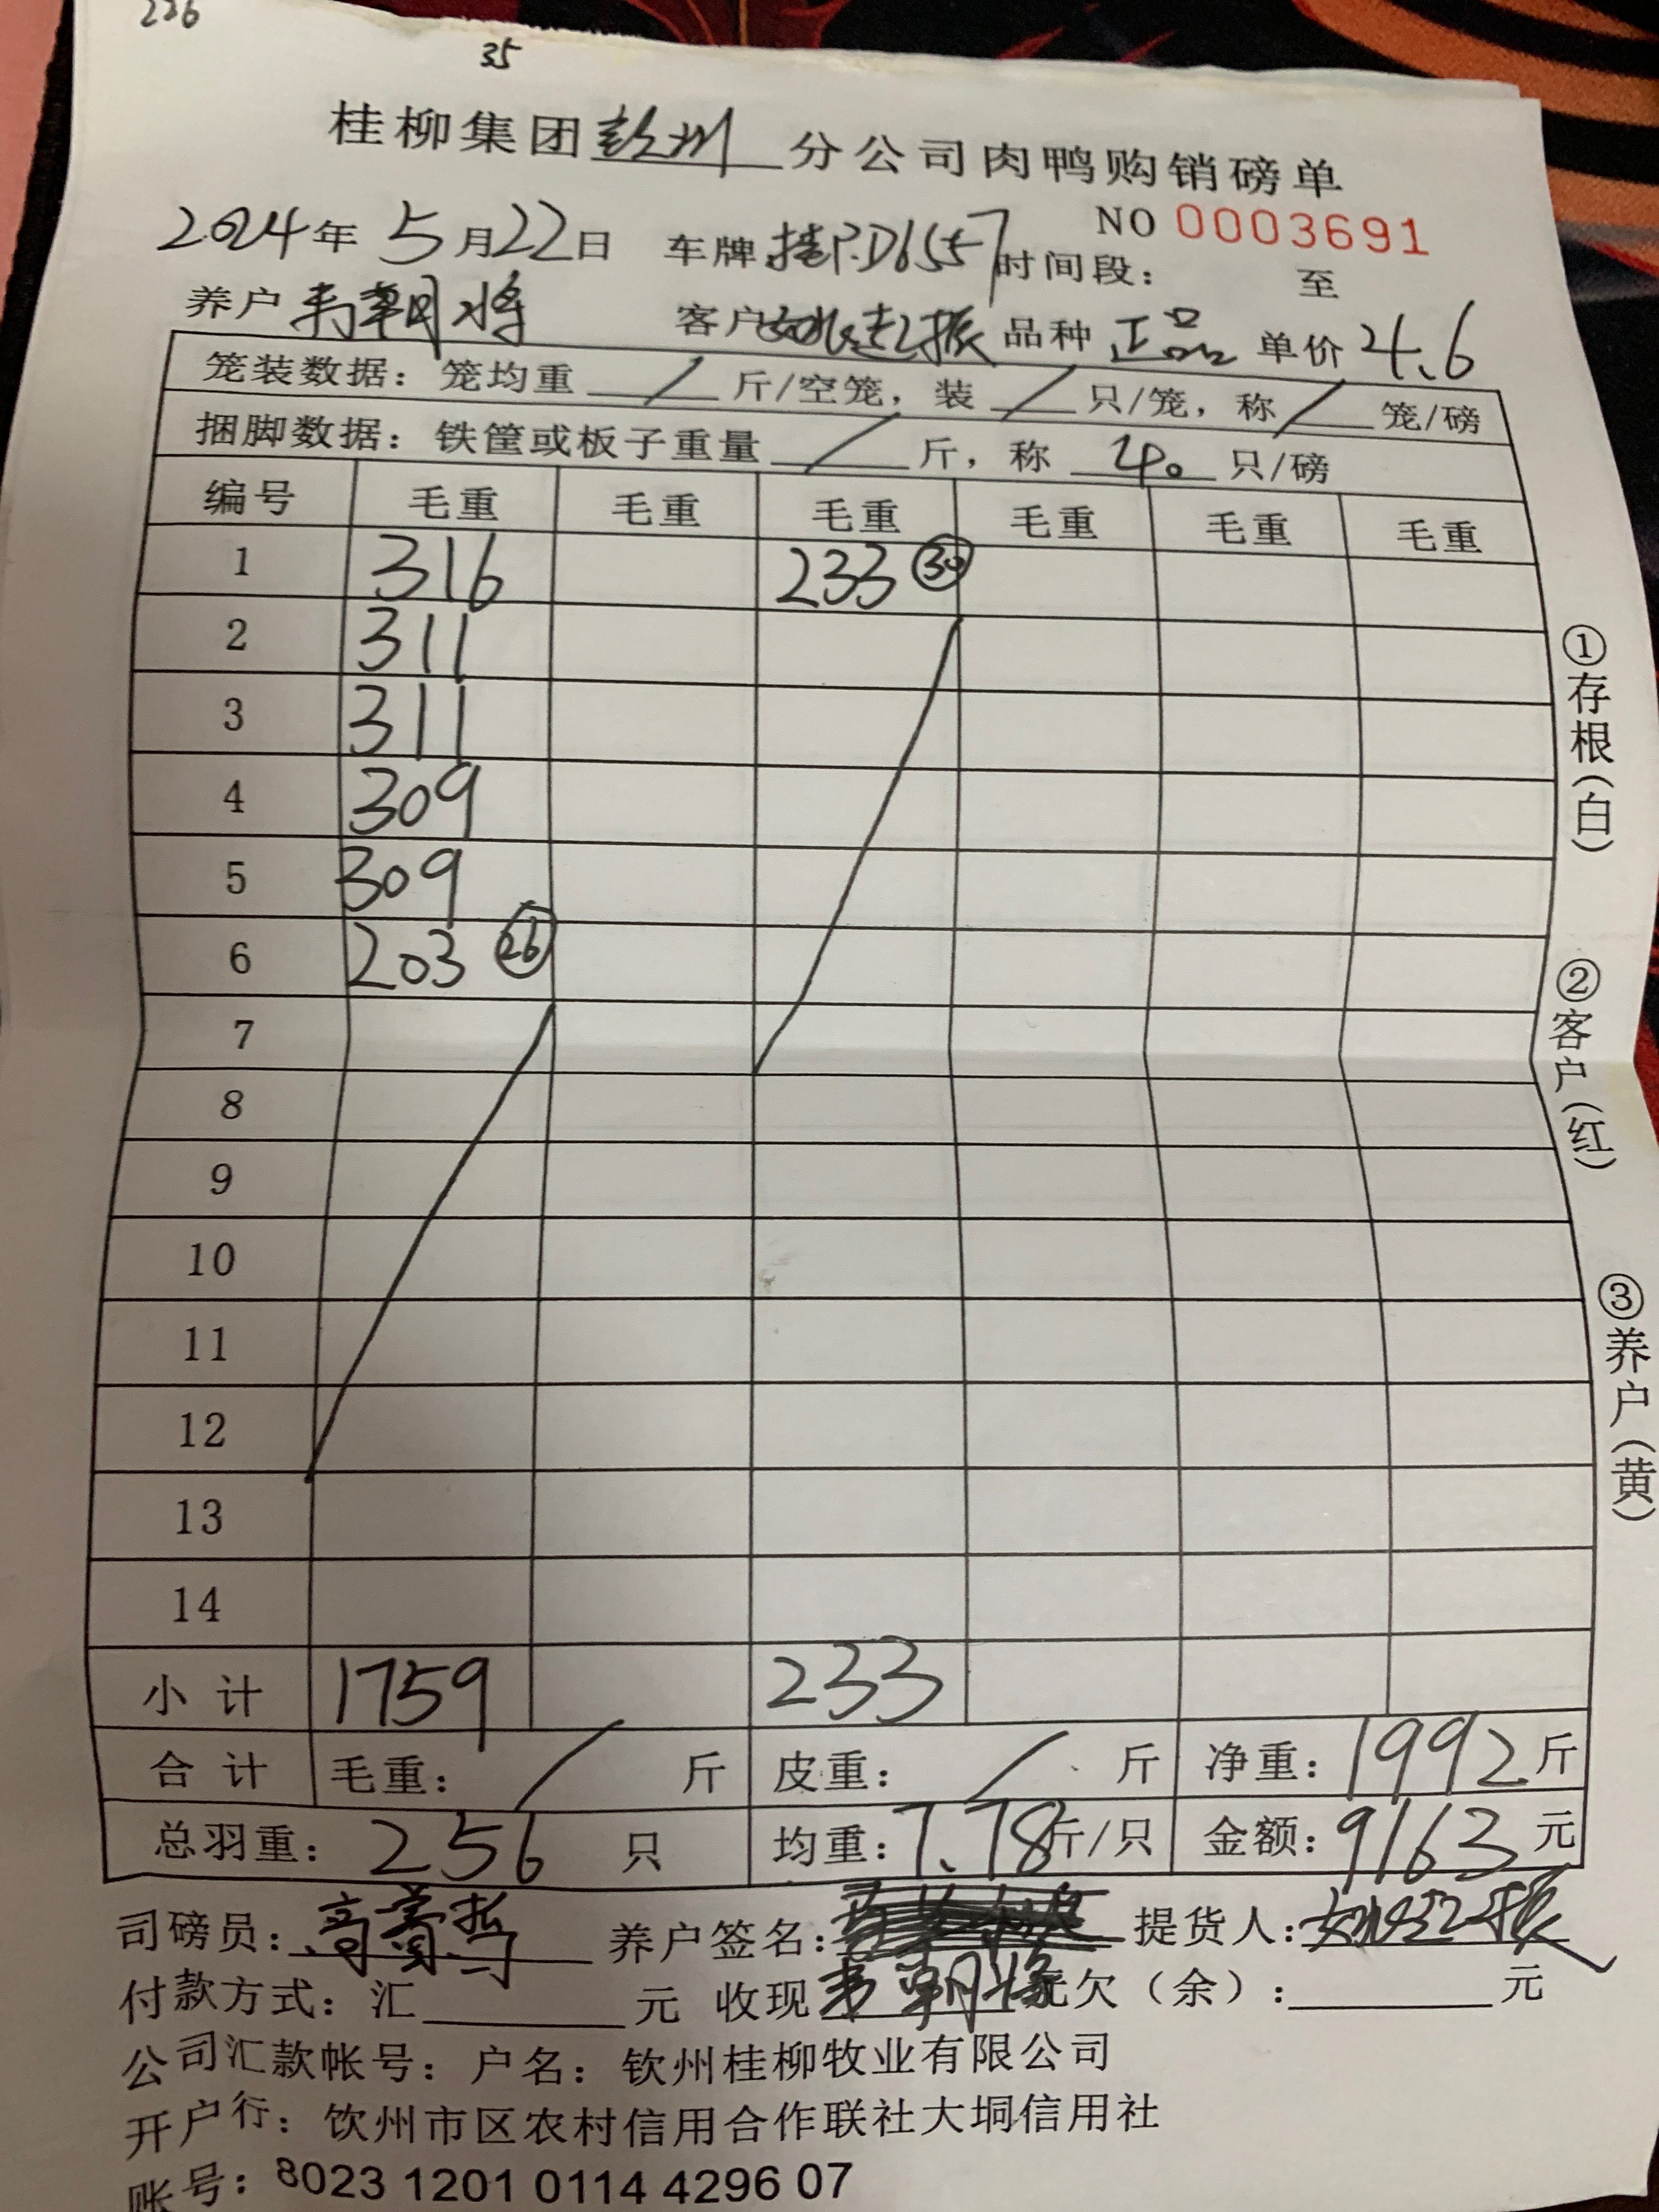 226
35
桂柳集团 分公司肉鸭购销磅单
NO 0003691
2024年 5月22日 车牌 桂P.D6557 时间段： 至
养户 韦朝将 客户 赵振 品种 正品 单价 4.6
笼装数据：笼均重 / 斤/空笼，装 / 只/笼，称 / 笼/磅
捆脚数据：铁筐或板子重量 / 斤，称 40 只/磅
编号 毛重 毛重 毛重 毛重 毛重 毛重
1 316 233 ㉚
2 311
3 311
4 309
5 309
6 203 ㉖
7
8
9
10
11
12
13
14
小计 1759 233
合计 毛重： / 斤 皮重： / 斤 净重：1992斤
总羽重：256 只 均重：7.78斤/只 金额：9163元
司磅员： 养户签名： 提货人：
付款方式：汇 元 收现 韦朝将 元欠（余）： 元
公司汇款帐号：户名：钦州桂柳牧业有限公司
开户行：饮州市区农村信用合作联社大垌信用社
账号：8023 1201 0114 4296 07
①存根（白）
②客户（红）
③养户（黄）